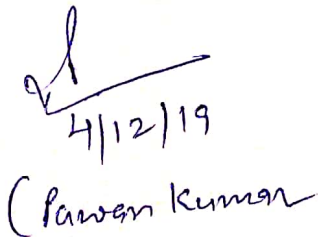 4/12/19
(Pawan Kumar